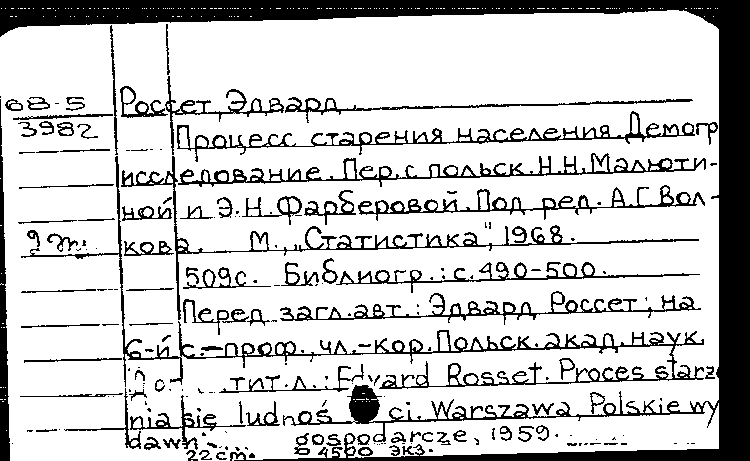 68-5 Россет, Эдвард.
3982 Процесс старения населения. Демогр
исследование. Пер. с польск. Н.Н. Малюти-
ной и Э.Н. Фарберовой. Под ред. А.Г. Вол-
кова. М., „Статистика", 1968.
509с. Библиогр.: с. 490-500.
Перед загл. авт.: Эдвард Россет, на
6-й с.-проф., чл.-кор. Польск. акад. наук.
тит. л.: Edvard Rosset. Proces starze
nia się ludnoś ci. Warszawa, Polskie wy
dawn. gospodarcze, 1959.
22cm. 4500 экз.